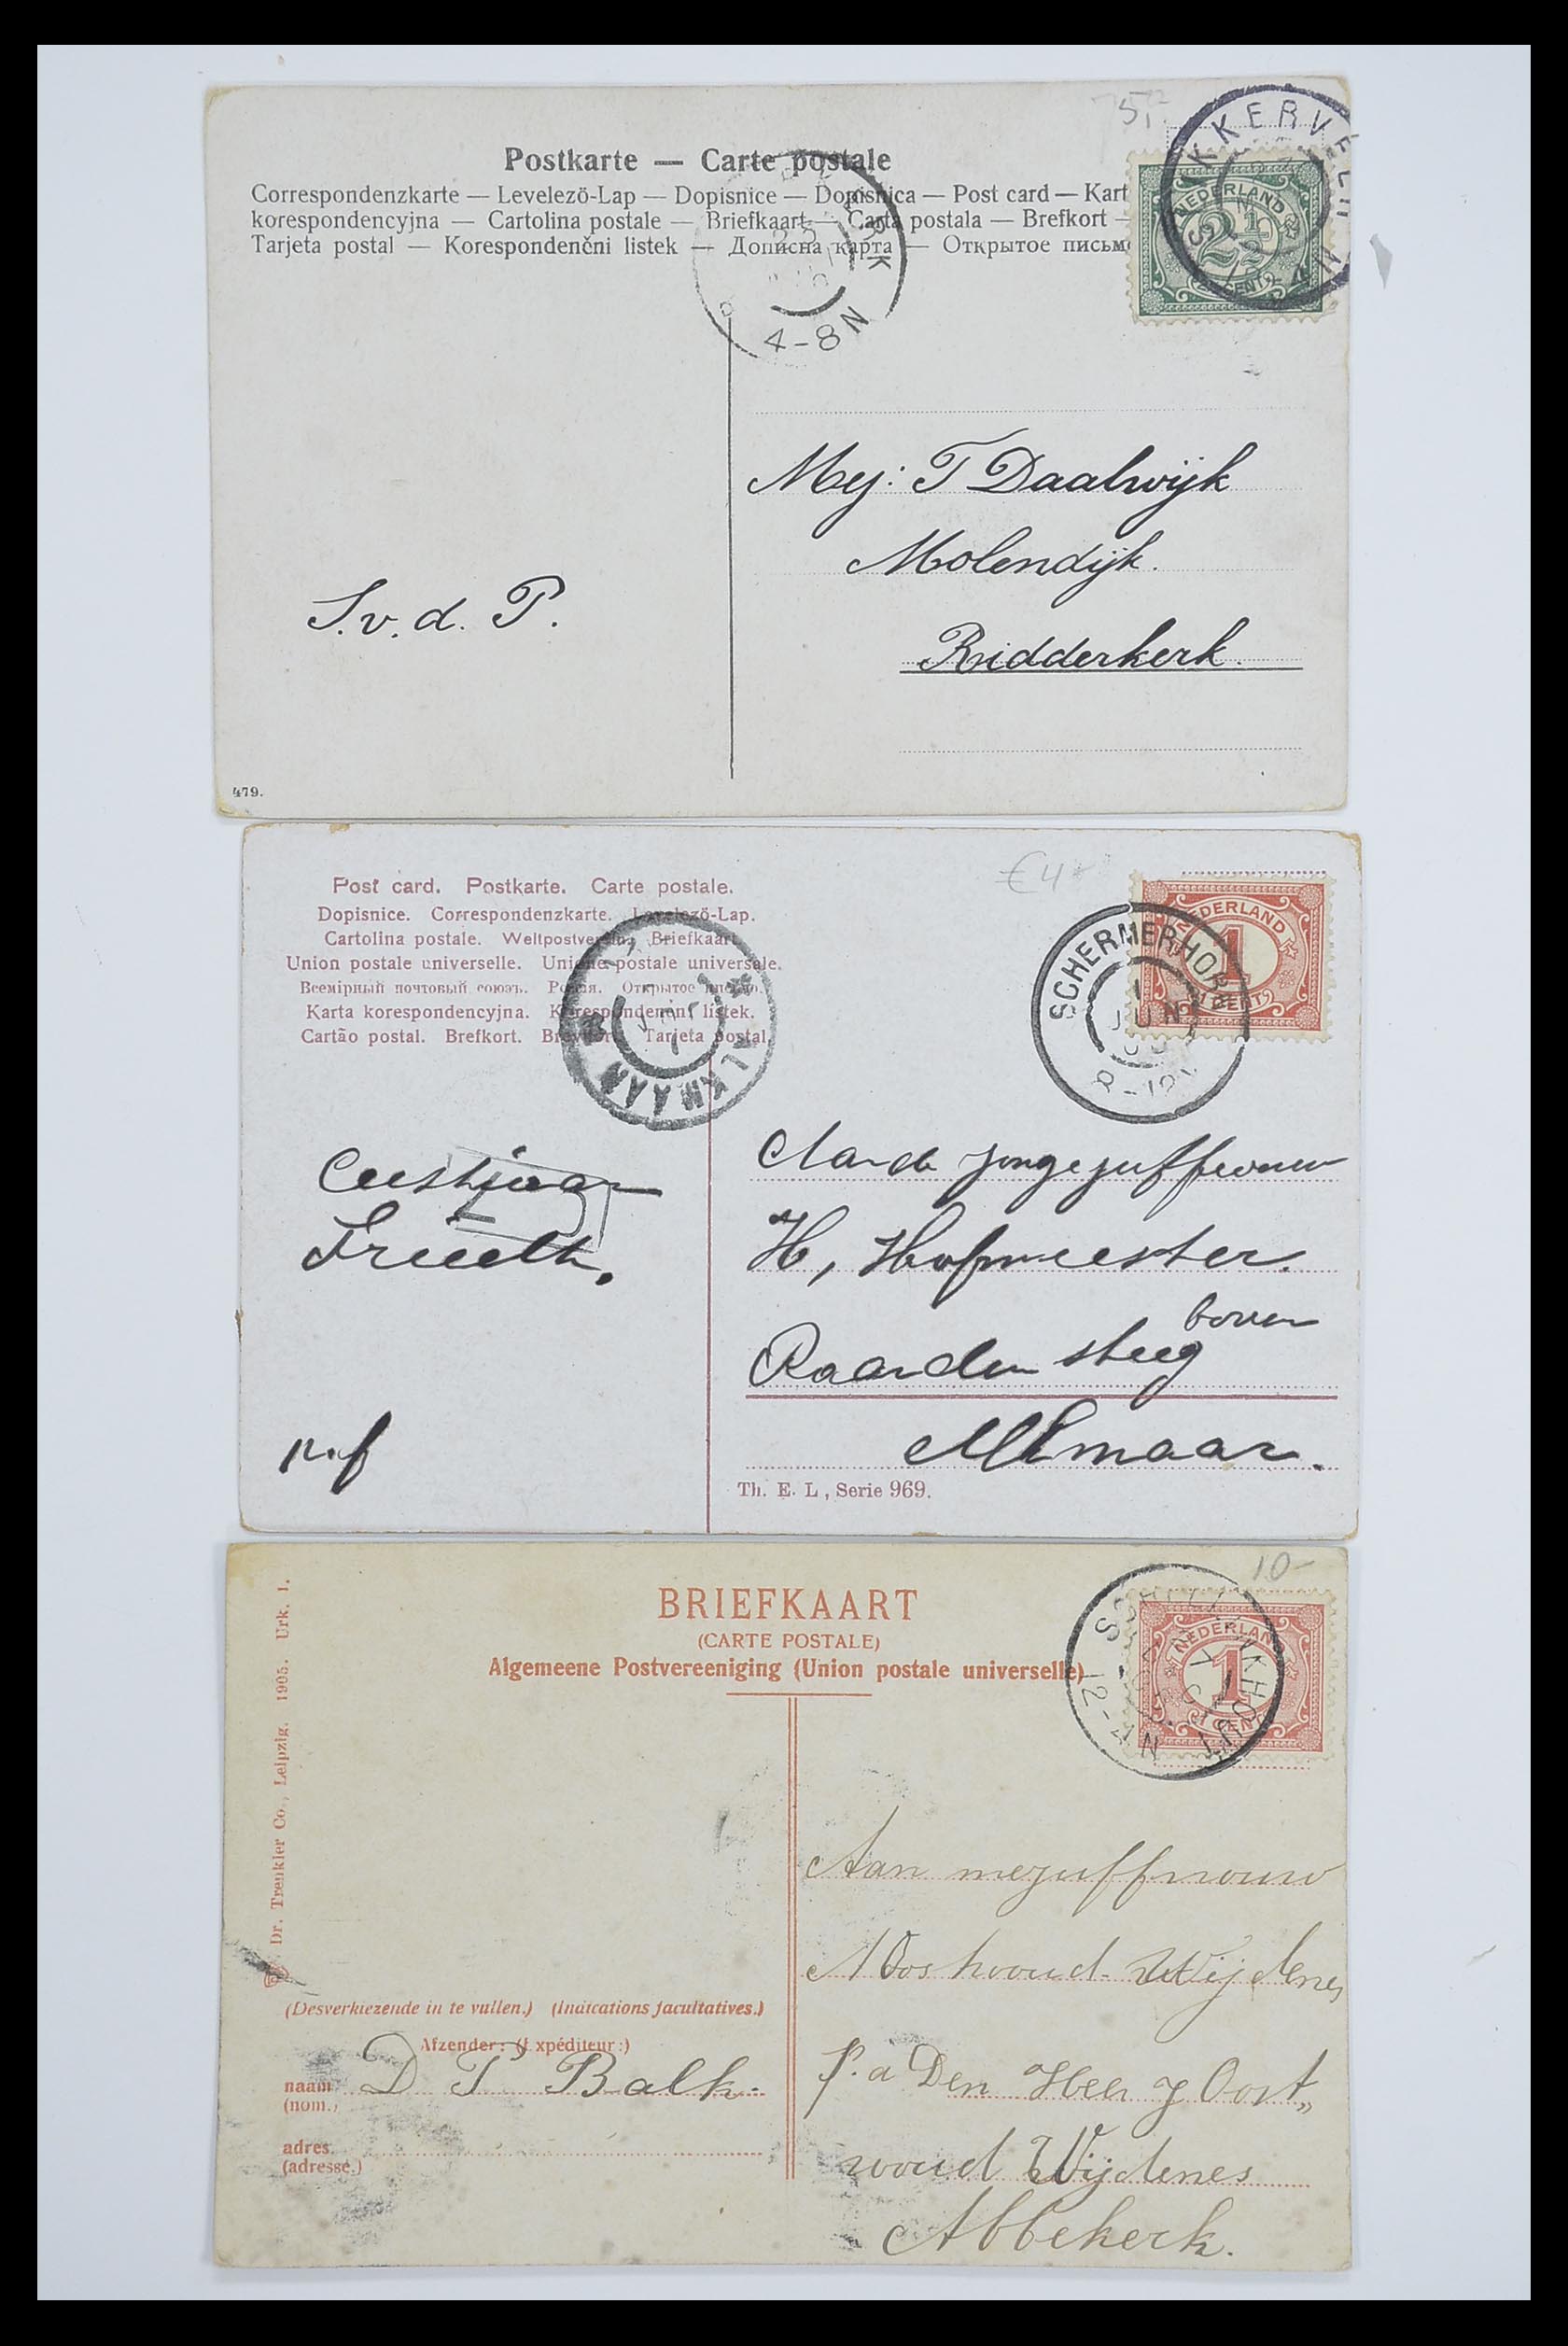 75,-
Postkarte — Carte postale
Correspondenzkarte — Levelezö-Lap — Dopisnice — Dopisnica — Post card — Kart
korespondencyjna — Cartolina postale — Briefkaart — Carta postala — Brefkort —
Tarjeta postal — Korespondenčni listek — Дописна карта — Открытое письмо
NEDERLAND
2½
CENT
4-8N
Mej: T Daalwijk
Molendijk.
S.v.d. P.
Ridderkerk.
479.
Post card. Postkarte. Carte postale.
Dopisnice. Correspondenzkarte. Levelezö-Lap.
Cartolina postale. Weltpostverein. Briefkaart.
Union postale universelle. Unione postale universale.
Всемірный почтовый союзъ. Россія. Открытое письмо.
Karta korespondencyjna. Korespondenční lístek.
Cartão postal. Brefkort. Brevkort. Tarjeta postal.
€4-
NEDERLAND
1
1 CENT
SCHERMERHORN
1 JUN
8-12V
ALKMAAR
Aan de jonge juffrouw
H, Hofmeester.
boven
Raarden steeg
Alkmaar.
n.f
Th. E. L, Serie 969.
10-
BRIEFKAART
(CARTE POSTALE)
Algemeene Postvereeniging (Union postale universelle)
NEDERLAND
1
1 CENT
SCHELLINKHOUT
12-4N
Dr. Trenkler Co., Leipzig. 1905. Urk. 1.
Aan mejuffrouw
N Oostwoud-Wijdenes
p.a Den Heer J Oost„
woud Wijdenes
Abbekerk.
(Desverkiezende in te vullen.) (Indications facultatives.)
Afzender: (Expéditeur:)
naam D P Balk.
(nom.)
adres
(adresse.)